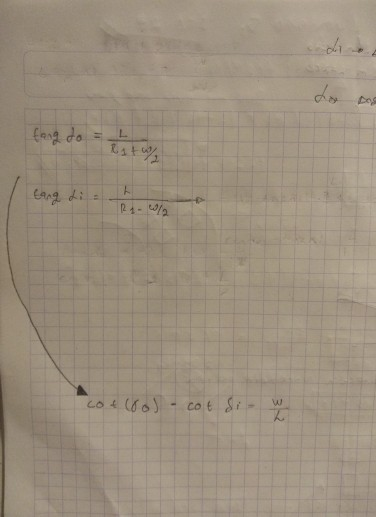 δi →
δo →
tang δo = L / (R1 + w/2)
tang δi = L / (R1 - w/2) →
cot (δo) - cot δi = w / L